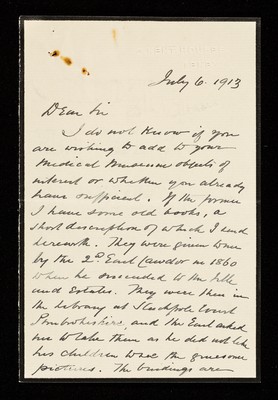 July 6. 1913
Dear Sir
I do not know if you
are wishing to add to your
Medical Museum objects of
interest or whether you already
have sufficient. If the former
I have some old books, a
short description of which I send
herewith. They were given to me
by the 2d. Earl Cawdor in 1860
when he succeeded to the title
and Estates. They were then in
the library at Stackpole Court
Pembrokeshire, and the Earl asked
me to take them as he did not like
his children to see the gruesome
pictures. The bindings are